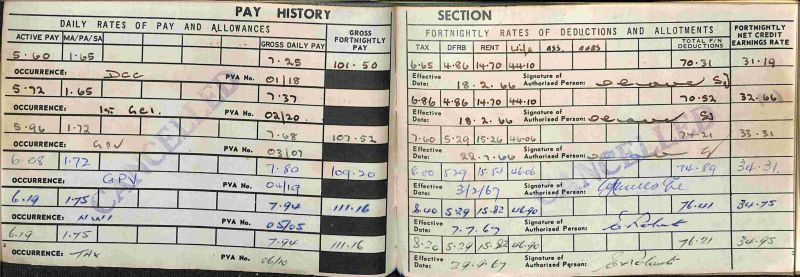 PAY HISTORY SECTION
DAILY RATES OF PAY AND ALLOWANCES GROSS FORTNIGHTLY PAY FORTNIGHTLY RATES OF DEDUCTIONS AND ALLOTMENTS FORTNIGHTLY NET CREDIT EARNINGS RATE
ACTIVE PAY MA/PA/SA GROSS DAILY PAY TAX DFRB RENT Wife ASS. TOTAL F/N DEDUCTIONS
5.60 1.65 7.25 101.50 6.65 4.86 14.70 44.10 70.31 31.19
OCCURRENCE: DCC PVA No. 01/18 Effective Date: 18.2.66 Signature of Authorised Person:
5.72 1.65 7.37 6.86 4.86 14.70 44.10 70.52 32.66
OCCURRENCE: PVA No. 02/20 Effective Date: 18.2.66 Signature of Authorised Person:
5.96 1.72 7.68 107.52 7.60 5.29 15.26 46.06 74.21 33.31
OCCURRENCE: GPV PVA No. 03/07 Effective Date: 22.7.66 Signature of Authorised Person:
6.08 1.72 7.80 109.20 8.00 5.29 15.54 46.06 74.89 34.31
OCCURRENCE: GPV PVA No. 04/19 Effective Date: 3/2/67 Signature of Authorised Person:
6.19 1.75 7.94 111.16 8.40 5.29 15.82 46.90 76.41 34.75
OCCURRENCE: PVA No. 05/05 Effective Date: 7.7.67 Signature of Authorised Person:
6.19 1.75 7.94 111.16 8.20 5.29 15.82 46.90 76.21 34.95
OCCURRENCE: TAX PVA No. 06/10 Effective Date: 29.9.67 Signature of Authorised Person:
CANCELLED
CANCELLED